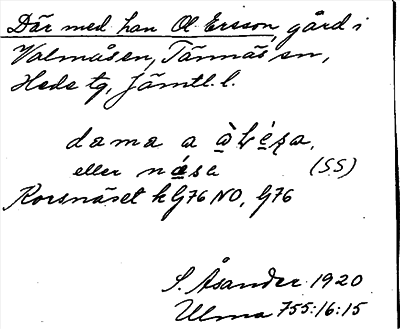 Där med han Ol. Ersson, gård i
Valmåsen, Tännäs sn,
Hede tg, Jämtl. l.
dama a
eller nása (SS)
Korsnäset k G76 NO, G76
S. Åsander 1920
Ulma 755:16:15